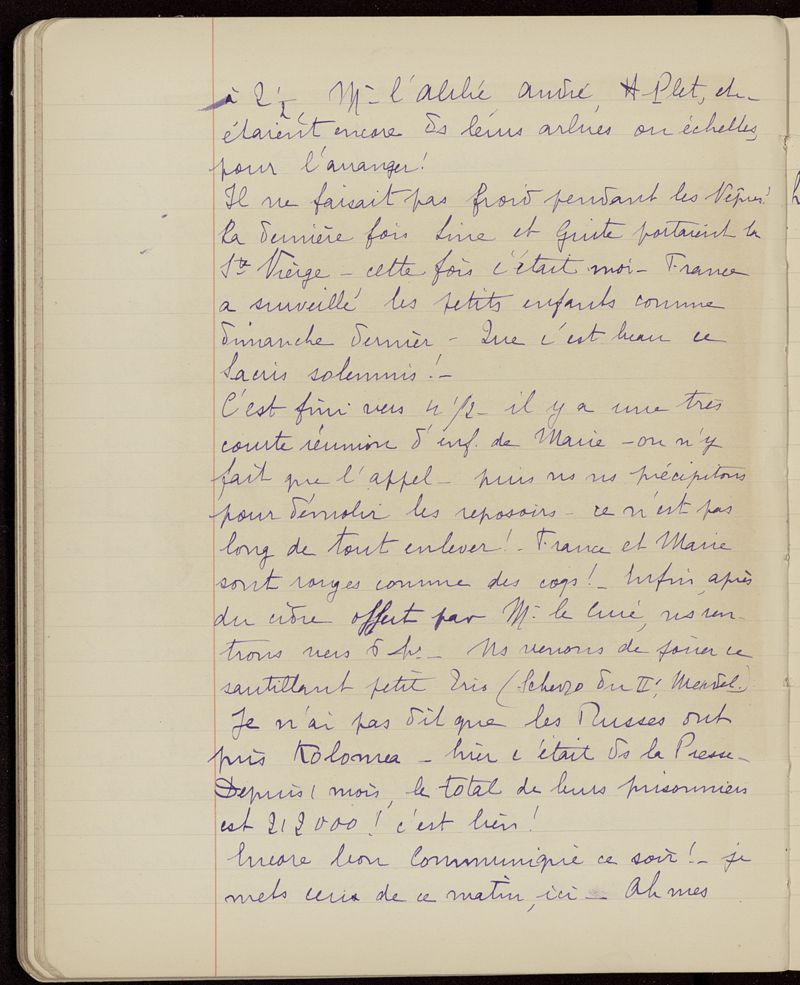 à 2 1/2, Mr l'abbé, André, H Plet, etc
étaient encore ds leurs arbres ou échelles,
pour l'arranger!
Il ne faisait pas froid pendant les Vêpres!
La dernière fois Line et Guite portaient la
Ste Vierge - cette fois c'était moi - France
a surveillé les petits enfants comme
dimanche dernier - Que c'est beau ce
Sacris solemnis! -
C'est fini vers 4 1/2 - il y a une très
courte réunion d'enf. de Marie - on n'y
fait que l'appel - puis ns ns précipitons
pour démolir les reposoirs - ce n'est pas
long de tout enlever! - France et Marie
sont rouges comme des coqs! - Enfin, après
du cidre offert par Mr le Curé, ns ren-
trons vers 6 h. - Ns venons de jouer ce
sautillant petit Trio (Scherzo du IIe, Mendel.)
Je n'ai pas dit que les Russes ont
pris Kolomea - hier c'était ds la Presse -
Depuis 1 mois, le total de leurs prisonniers
est 212000! c'est bien!
Encore bon Communiqué ce soir! - je
mets ceux de ce matin, ici - Ah mes